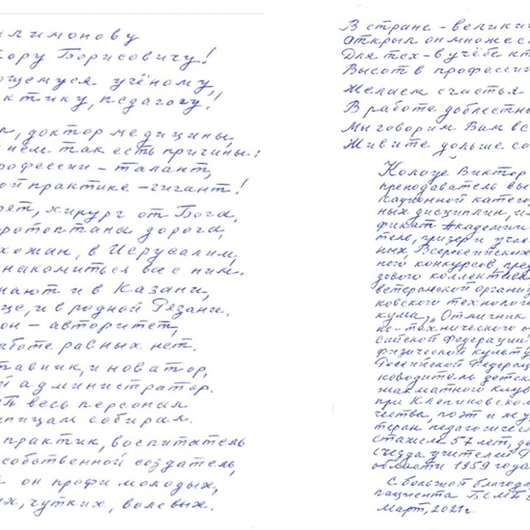 лимонову
тору Борисовичу!
ющемуся учёному,
актику, педагогу!
р, доктор медицины.
нём так есть причины:
рофессии – талант,
ой практике – гигант!
рят, хирург от Бога,
ротоптана дорога,
хожан, в Иерусалим,
накомиться все с ним.
нают и в Казани,
це, и в родной Рязани.
он – авторитет,
аботе равных нет.
ставник, и новатор,
й администратор.
П весь персонал
пицам собирал.
практик, воспитатель
собственной создатель,
он профи молодых,
ых, чутких, волевых.
В стране – велики
Открыл он множес
Для тех – в учёбе кт
Высот в професси
Желаем счастья
В работе доблестны
Мы говорим Вам вс
Живите дольше со
Колоце Виктор
преподаватель выс
кационной катего
ных дисциплин, и
фикат Академии
теле, призёр и учас
ных, Всероссийских
ного конкурсов пред
дового коллектива
ветеранской органи
ковского технологи
кума, Отличник
но-технического о
сийской Федерации
физической культур
Российской Федерац
ководитель детск
шахматного клуба
при Клепиковском
чества, поэт и му
теран педагогичес
стажем 57 лет, де
съезда учителей Р
области 1959 года
С большой благода
пациента БСМП
Март, 2021г.